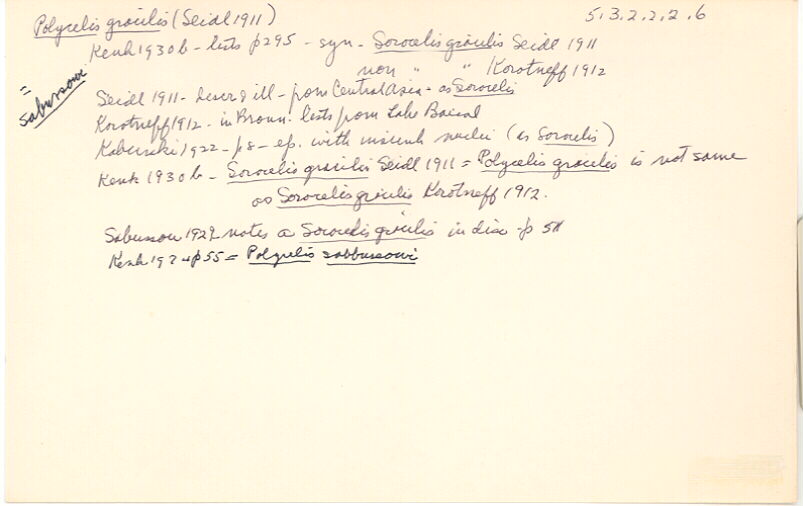 Polycelis gracilis (Seidl 1911)
5.3.2.2.2.6
Kenk 1930b - lists p295 - syn - Sorocelis gracilis Seidl 1911
non " " Korotneff 1912
= sabussowi
Seidl 1911 - descr & ill - from Central Asia - as Sorocelis
Korotneff 1912 - in Brown: lists from Lake Baical
Kaburaki 1922 - p8 - ep. with insunk nuclei (as Sorocelis)
Kenk 1930b - Sorocelis gracilis Seidl 1911 = Polycelis gracilis is not same
as Sorocelis gracilis Korotneff 1912.
Sabussow 1929 notes a Sorocelis gracilis in disc - p 511
Kenk 1974 p55 = Polycelis sabbussowi